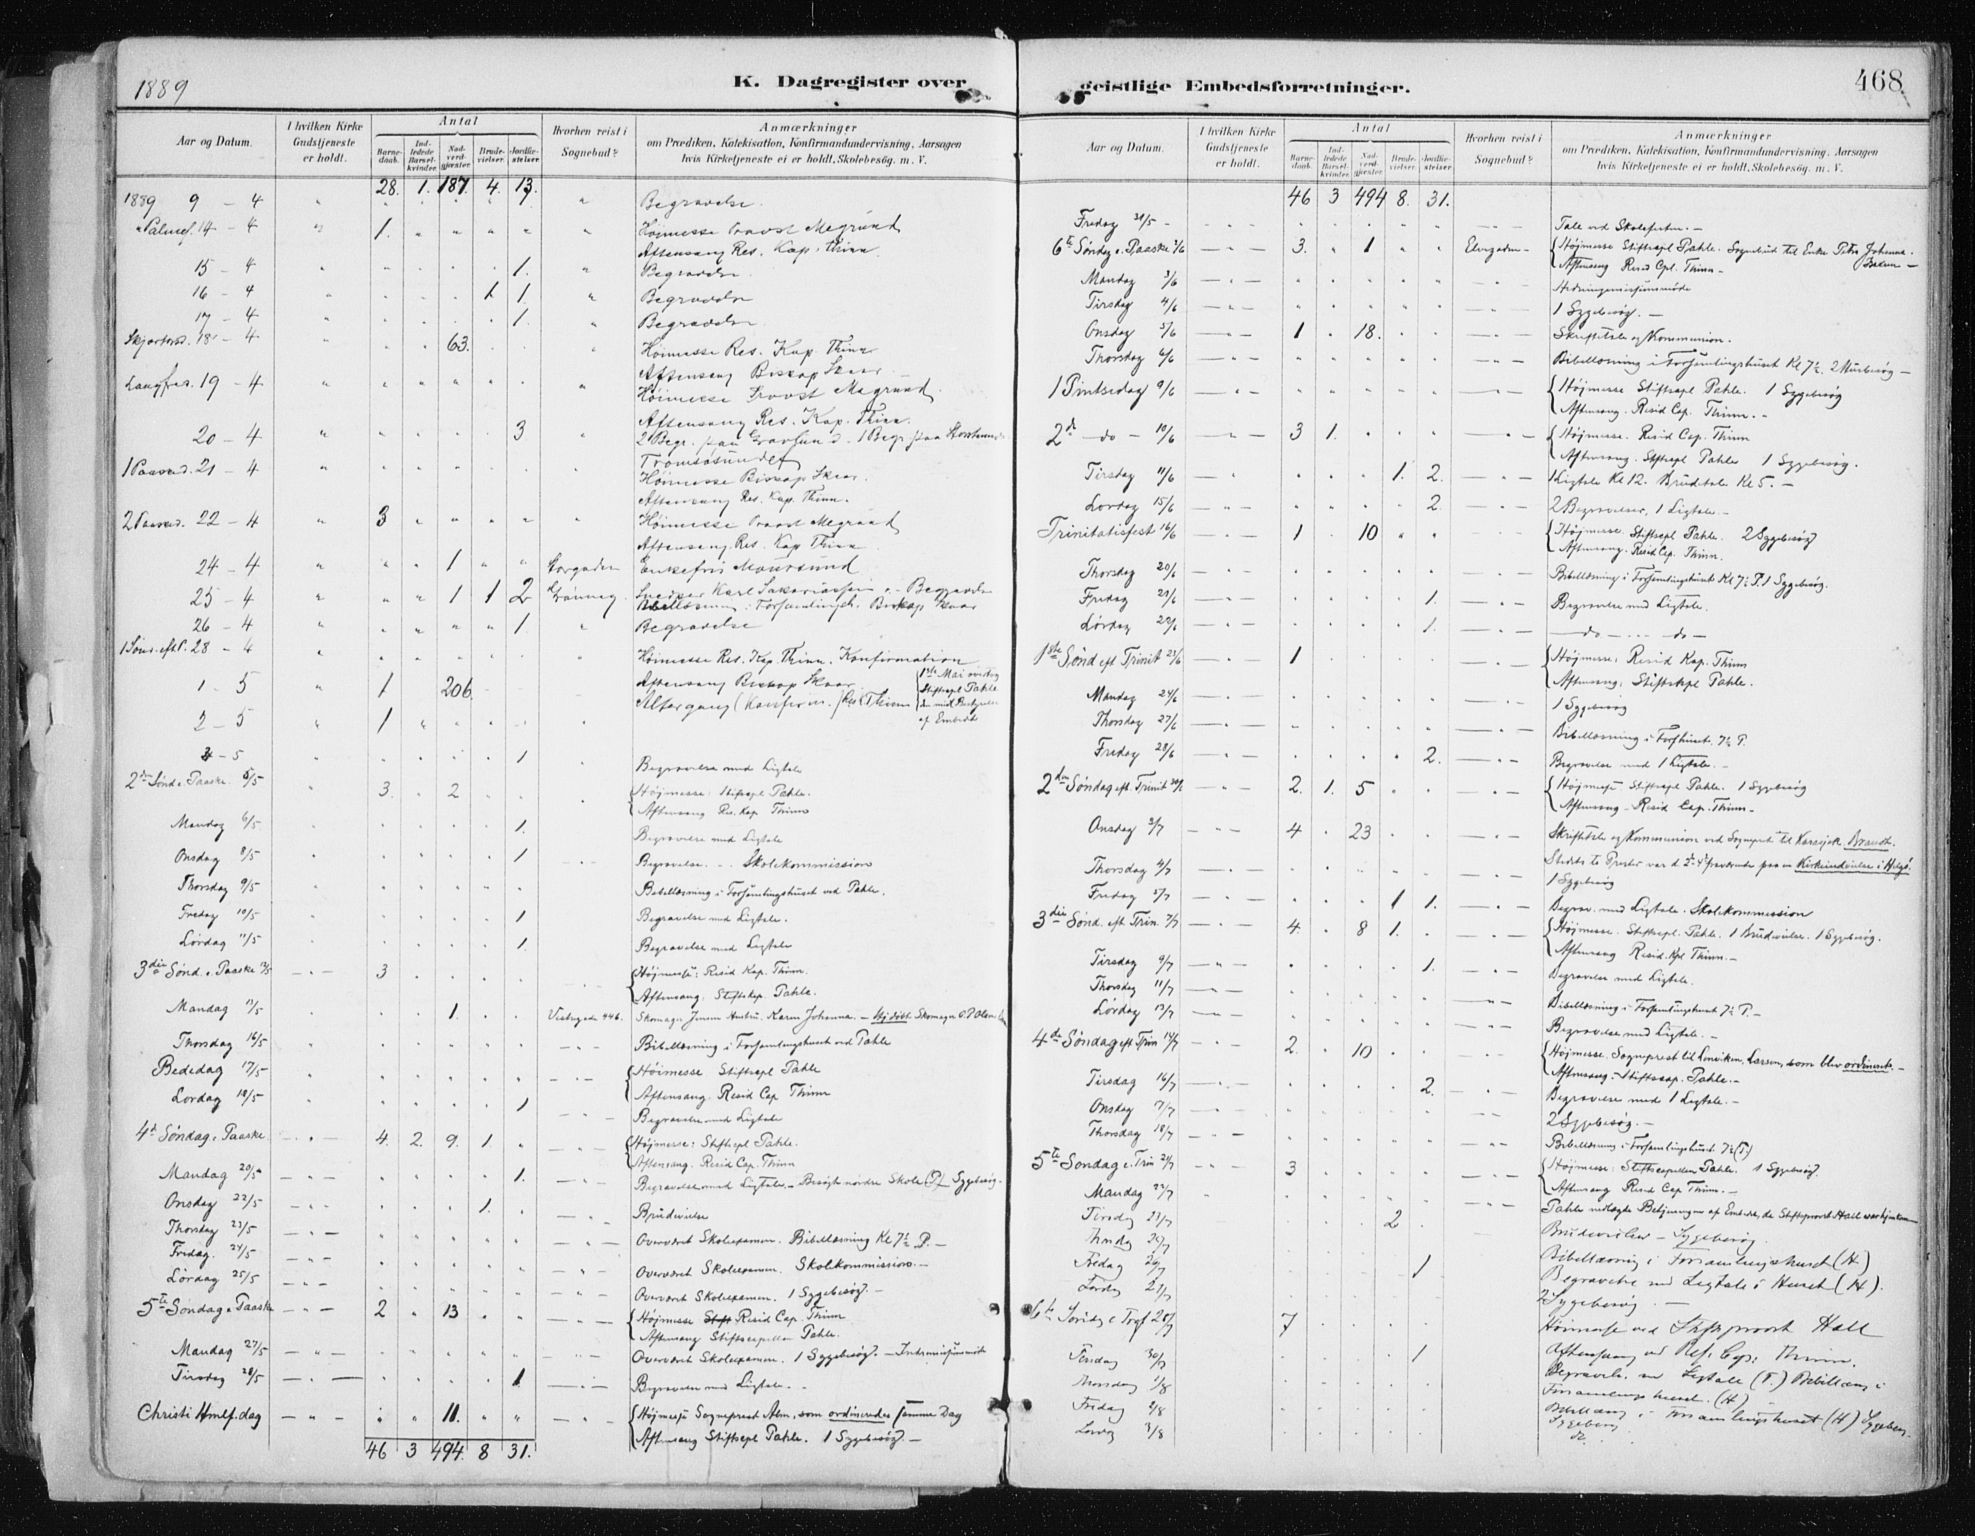 1889
K. Dagregister over
Antal
Aar og Datum.
I hvilken Kirke Gudstjeneste er holdt.
Barne-daab.
Ind-ledede Barsel-kvinder.
Nad-verd-gjester.
Brude-vielser.
Jordfæ-stelser.
Hvorhen reist i Sognebud?
Anmærkninger
om Prædiken, Katekisation, Konfirmandundervisning, Aarsagen
hvis Kirketjeneste ei er holdt, Skolebesøg. m. V.
28. 1. 187. 4. 13.
1889 9 - 4 Begravelse.
Palmes. 14 - 4 1. Høimesse Provst Megrund
Aftensang Res. Kap. Thinn
15 - 4 1. Begravelse.
16 - 4 1 1. Begravelse
17 - 4 1. Begravelse
Skjærtorsd. 18 - 4 63. Høimesse Res. Kap. Thinn
Aftensang Biskop Skaar
Langfred. 19 - 4 Høimesse Provst Megrund
Aftensang Res. Kap. Thinn.
20 - 4 3 2 Begr. paa Gravlund. 1 Begr. paa
Tromsøsundet
1 Paasked. 21 - 4 Høimesse Biskop Skaar.
Aftensang Res. Kap. Thinn.
2 Paasked. 22 - 4 3 Høimesse Provst Megrund
Aftensang Res. Kap Thinn
24 - 4 1 Storgaden Enkefru Moursund
25 - 4 1 1 2 Grønneg. Karl Sakariassen Begravelse
Bibellæsning i Forsamlingsh. Biskop Skaar
26 - 4 1. Begravelse
1 Sønd. eft. P. 28 - 4 Høimesse Res. Kap. Thinn. Konfirmation
Aftensang Biskop Skaar
1 - 5 1 206. Altergang (Konfirm.) Thinn
1ste Mai overtog Stiftscpl Pahle
af Embedet
2 - 5 1
4 - 5 1 Begravelse med Ligtale
2den Sønd e. Paaske 5/5 3. 2 Højmesse: Stiftscpl Pahle.
Aftensang Res. Kap Thinn
Mandag 6/5 1. Begravelse med Ligtale
Onsdag 8/5 1 Begravelse. - Skolekommission
Thorsdag 9/5 Bibellæsning i Forsamlingshuset ved Pahle.
Fredag 10/5 1 Begravelse med Ligtale.
Lørdag 11/5 1. Begravelse med Ligtale
3die Sønd. e. Paaske 12/5 3 Højmesse: Resid Kap. Thinn.
Aftensang: Stiftskap. Pahle.
Mandag 13/5 1. Vestregade 446. Skomager Jensens Hustru, Karen Johanna. - Hj.døbt Skomager
Thorsdag 16/5 Bibellæsning i Forsamlingshuset ved Pahle
Bededag 17/5 Høimesse Stiftscpl Pahle
Aftensang. Resid Cap Thinn
Lørdag 18/5 1 Begravelse med Ligtale
4de Søndag e. Paaske 4. 2. 9. 1. Højmesse: Stiftscpl Pahle.
Aftensang. Resid Cap. Thinn
Mandag 20/5 1. Begravelse med Ligtale. - Besøgt nordre Skole (P) Sygebesøg.
Onsdag 22/5 1. Brudevielse
Thorsdag 23/5 Overværet Skoleexamen. Bibellæsning Kl 7½ P. -
Fredag. 24/5 Overværet Skoleexamen. Skolekommission. -
Lørdag 25/5 Overværet Skoleexamen. 1 Sygebesøg. -
5te Søndag e Paaske 2 13 Højmesse Resid Cap. Thinn
Aftensang Stiftscapellan Pahle.
Mandag 27/5 Overværet Skoleexamen. 1 Sygebesøg. -
Tirsdag 28/5 1 Begravelse med Ligtale. -
Christi Hmlf.dag 11. Højmesse Sognepræst Alm, som ordineredes samme Dag
Aftensang Stiftscpl Pahle. 1 Sygebesøg. -
46 3 494. 8 31.
geistlige Embedsforretninger.
468
Antal
Aar og Datum.
I hvilken Kirke Gudstjeneste er holdt.
Barne-daab.
Ind-ledede Barsel-kvinder.
Nad-verd-gjester.
Brude-vielser.
Jordfæ-stelser.
Hvorhen reist i Sognebud?
Anmærkninger
om Prædiken, Katekisation, Konfirmandundervisning, Aarsagen
hvis Kirketjeneste ei er holdt, Skolebesøg. m. V.
46 3 494 8. 31.
Fredag 31/5 - Tale ved Skolefesten. -
6te Søndag e. Paaske 2/6 3. 1 Elvegaden - Højmesse Stiftscpl Pahle. Sognebud til Enke Petra Johanna
Aftensang Resid Cpl. Thinn -
Mandag 3/6
Tirsdag 4/6 1 Sygebesøg. -
Onsdag 5/6 1 18. Skriftetale og Kommunion.
Thorsdag 6/6 Bibellæsning i Forsamlingshuset Kl 7½. 2 Husbesøg -
1 Pintsedag 9/6 Højmesse Stiftscpl Pahle. 1 Sygebesøg
Aftensang. Resid Cap. Thinn. -
2den - do - 10/6 3 1. Højmesse. Resid Cap. Thinn
Aftensang. Stiftscpl Pahle 1 Sygebesøg.
Tirsdag 11/6 1. 2. 1 Ligtale Kl 12. Brudetale Kl 5. -
Lørdag 15/6 2. 2 Begravelser, 1 Ligtale. -
Trinitatisfest 16/6 1 10 Højmesse. Stiftscpl Pahle. 2 Sygebesøg
Aftensang. Resid Cap. Thinn.
Thorsdag 20/6 Bibellæsning i Forsamlingshuset Kl 7½ P. 1 Sygebesøg.
Fredag 21/6 1. Begravelse med Ligtale.
Lørdag 22/6 1. - do - - do -
1ste Sønd eft Trinit 23/6 1 Højmesse: Resid Kap. Thinn
Aftensang: Stiftskpl Pahle.
Mandag 24/6 1 Sygebesøg
Thorsdag 27/6 Bibellæsning i Forshuset. 7½ P.
Fredag 28/6 2. Begravelse med 1 Ligtale. -
2den Søndag eft. Trinit 30/6 2. 1. 5 Højmesse Stiftscpl Pahle. 1 Sygebesøg
Aftensang - Resid Cap. Thinn -
Onsdag 3/7 4 23 Skriftetale og Kommunion ved Sognepræst til Karasjok, Brandt.
Thorsdag 4/7 Stedets to Præster var d 2-4 fraværende paa en Kirkeindvielse i Helgø.
1 Sygebesøg
Fredag 5/7 1 1. Begrav. med Ligtale. Skolekommission
3die Sønd. eft Trin. 7/7 4. 8 1. Højmesse. Stiftscpl. Pahle. 1 Brudevielse. 1 Sygebesøg.
Aftensang Resid. Kpl Thinn. -
Tirsdag 9/7 1. Begravelse med Ligtale.
Thorsdag 11/7 Bibellæsning i Forsamlingshuset 7½ P. -
Lørdag 13/7 Begravelse med Ligtale. -
4de Søndag eft Trin 14/7 2. 10 Højmesse. Sognepræst til Lenviken, Larsen, som blev ordineret. -
Aftensang: Stiftscap. Pahle. -
Tirsdag 16/7 2. Begravelse med 1 Ligtale. -
Onsdag 17/7 2 Sygebesøg. -
Thorsdag 18/7 Bibellæsning i Forsamlingshuset. 7½ (P.)
5te Søndag e. Trin 21/7 3 Højmesse: Stiftscapellan Pahle. 1 Sygebesøg.
Aftensang Resid Cap Thinn. -
Mandag 22/7 Pahle nedlagde Betjeningen af Embedet, da Stiftsprovst Hall
Tirsdag 23/7 2 Brudevielser - Sygebesøg.
Bibellæsning i Forsamlingshuset (H)
Fredag 26/7 1 Begravelse med Ligtale i Huset (H).
Lørdag 27/7 2 Sygebesøg -
6te Søndag e Tref 28/7 7 Høimesse ved Stiftsprovst Hall
Aftensang ved Res. Cap. Thinn.
Tirsdag 30/7 1 Begravelse m Ligtale (T.) Bibellæsn i
Forsamlingshuset. (H)
Thorsdag 1/8 Bibellæsn i Forsamlingshuset (H) Sygebes.
Fredag 2/8 Sygebesøg
Lørdag 3/8 do.